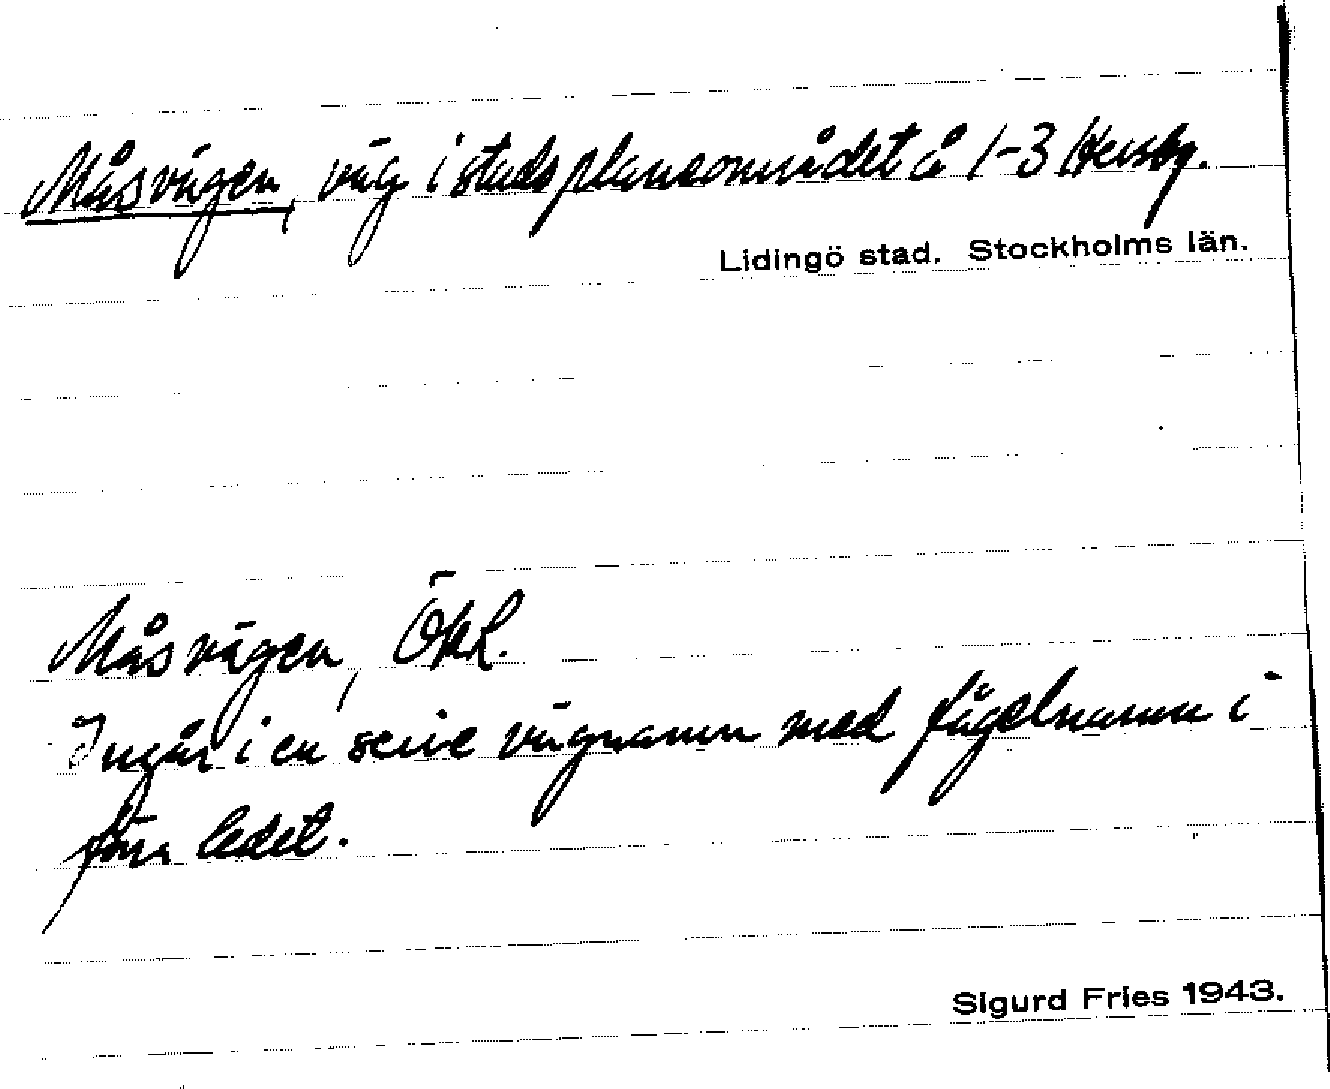 Måsvägen, väg i stadsplaneområdet å 1-3 Hersby.
Lidingö stad. Stockholms län.
Måsvägen, ÖkL.
Ingår i en serie vägnamn med fågelnamn i
förra ledet.
Sigurd Fries 1943.